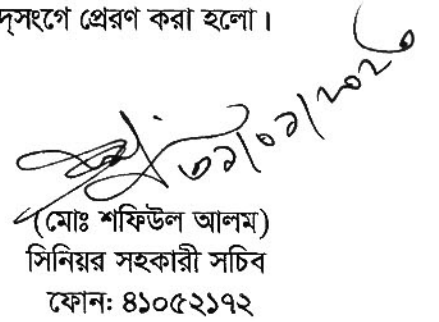 দ্সংগে প্রেরণ করা হলো।
৩১/০১/২০২৩
(মোঃ শফিউল আলম)
সিনিয়র সহকারী সচিব
ফোন: ৪১০৫২১৭২